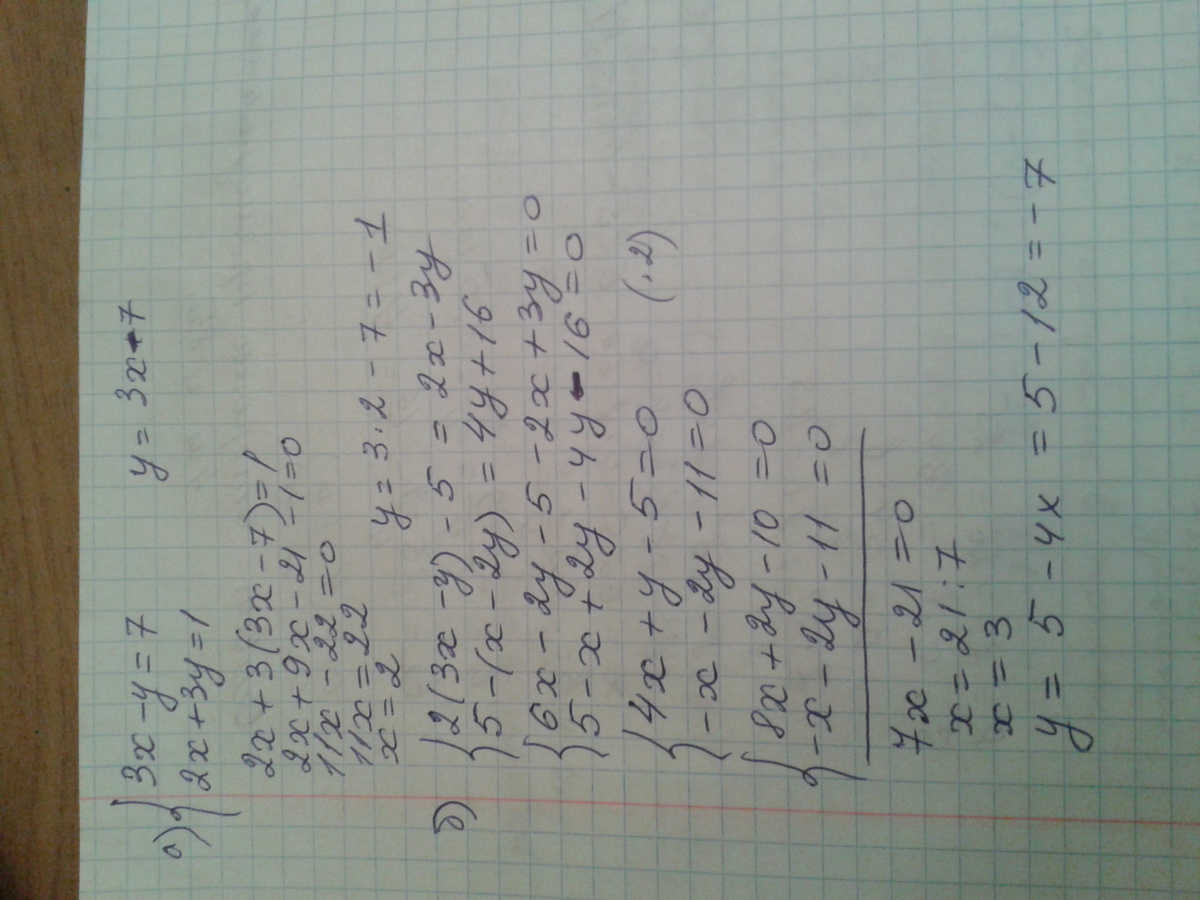 а) { 3x - y = 7     y = 3x - 7
2x + 3y = 1
2x + 3(3x - 7) = 1
2x + 9x - 21 - 1 = 0
11x - 22 = 0
11x = 22
x = 2     y = 3 · 2 - 7 = -1
б) { 2(3x - y) - 5 = 2x - 3y
5 - (x - 2y) = 4y + 16
{ 6x - 2y - 5 - 2x + 3y = 0
5 - x + 2y - 4y - 16 = 0
{ 4x + y - 5 = 0     (·2)
-x - 2y - 11 = 0
{ 8x + 2y - 10 = 0
-x - 2y - 11 = 0
7x - 21 = 0
x = 21 : 7
x = 3
y = 5 - 4x = 5 - 12 = -7